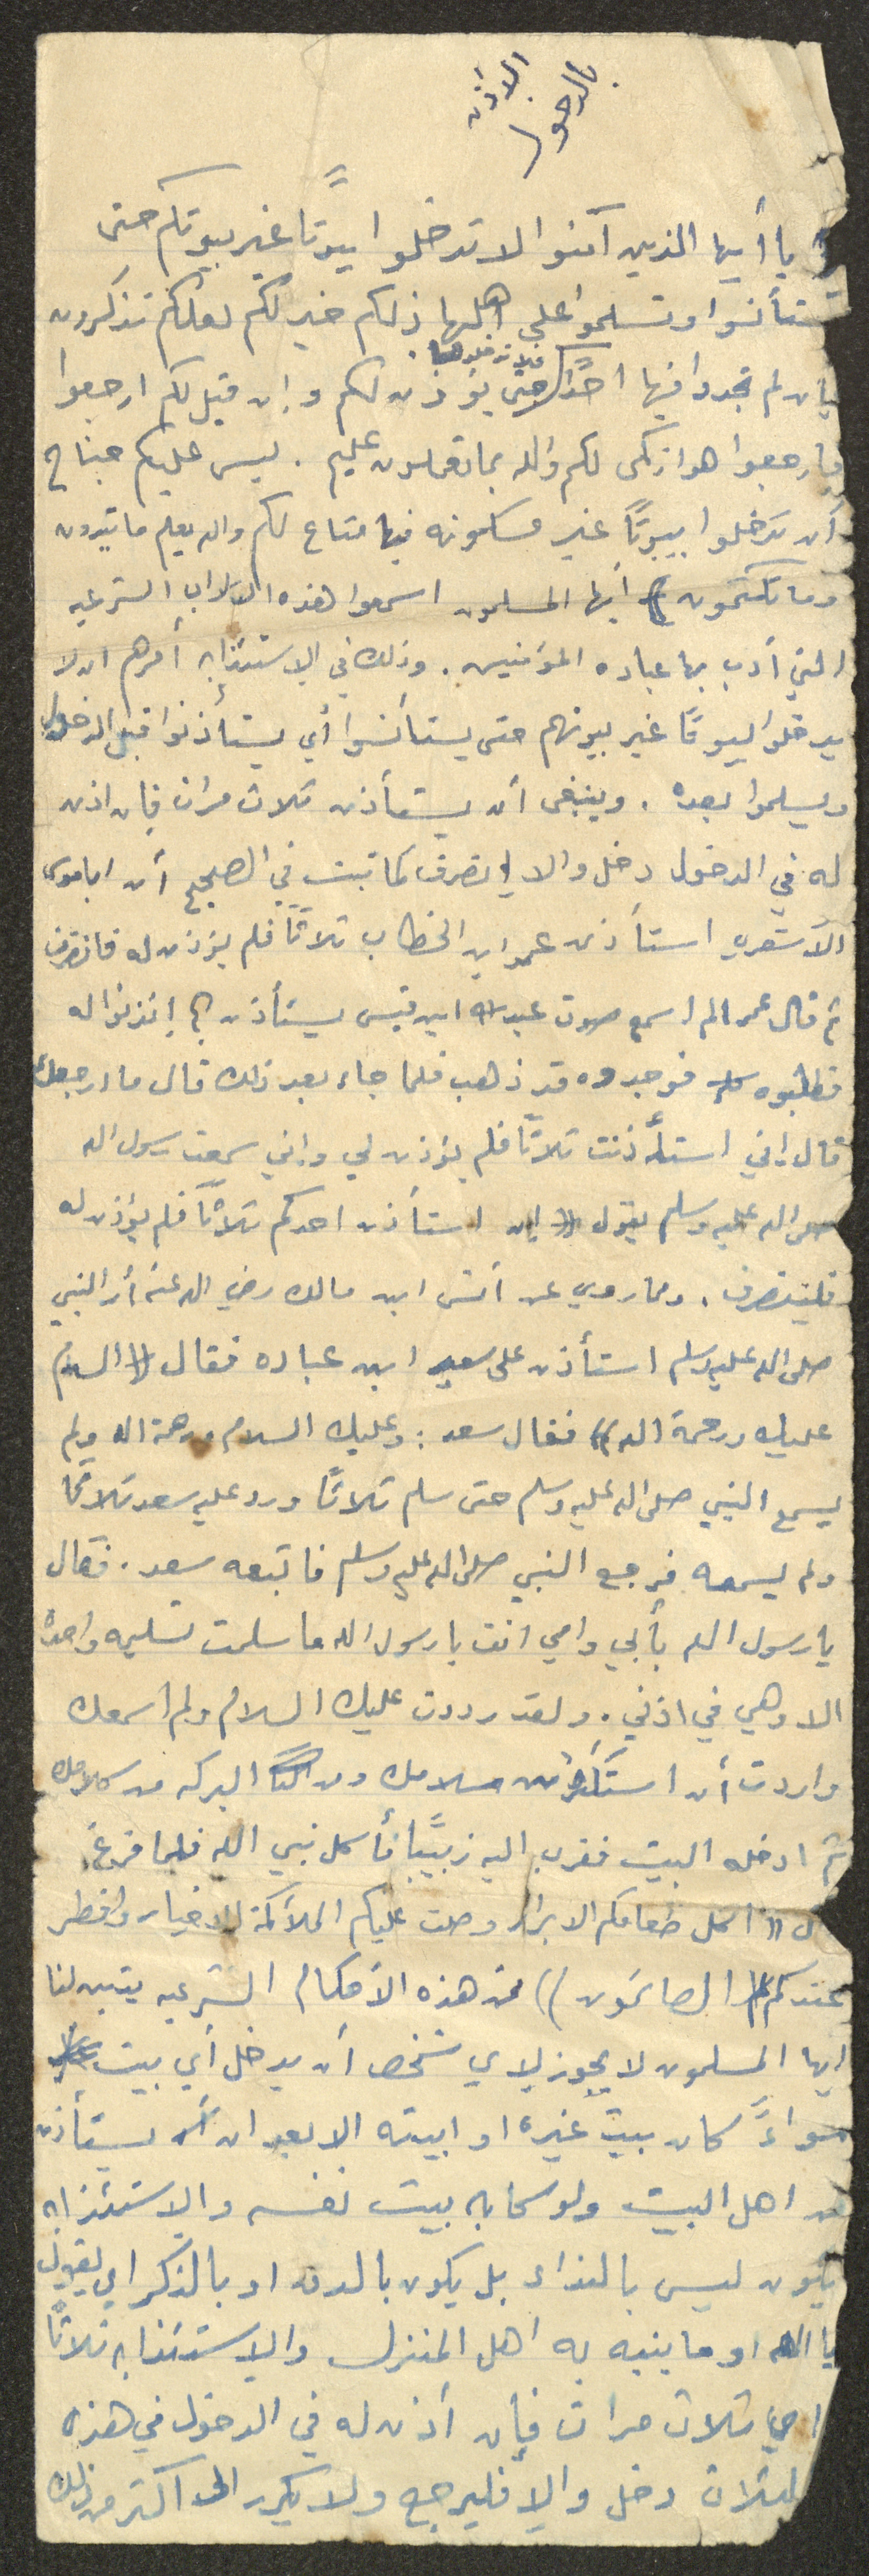 الاذن
بالدخول
يا أيها الذين آمنوا لا تدخلوا بيوتًا غير بيوتكم حتى
تستأنسوا وتسلموا على اهلها ذلكم خير لكم لعلكم تذكرون
فإن لم تجدوا فيها احدًا فلا تدخلوها حتى يؤذن لكم وإن قيل لكم ارجعوا
فارجعوا هو ازكى لكم والله بما تعملون عليم . ليس عليكم جناح
أن تدخلوا بيوتًا غير مسكونه فيها متاع لكم والله يعلم ما تبدون
وما تكتمون )) أيها المسلمون اسمعوا هذه الآداب الشرعيه
التي أدب بها عباده المؤمنين . وذلك في الإستئذان أمرهم ان لا
يدخلوا بيوتًا غير بيوتهم حتى يستأنسوا أي يستأذنوا قبل الدخول
ويسلموا بعده . وينبغي أن يستأذن ثلاث مرات فإن اذن
له في الدخول دخل والا إنصرف كما ثبت في الصحيح أن ابا موسى
الأشعري استأذن عمر ابن الخطاب ثلاثًا فلم يؤذن له فانصرف
ثم قال عمر الم اسمع صوت عبدالله ابن قيس يستأذن ؟ إئذنوا له
فطلبوه فوجدوه قد ذهب فلما جاء بعد ذلك قال ما ارجعك
قال إني استأذنت ثلاثًا فلم يؤذن لي وإني سمعت رسول الله
صلى الله عليه وسلم يقول (( إن استأذن احدكم ثلاثًا فلم يؤذن له
فلينصرف . ومما روي عن أنس ابن مالك رضي الله عنه أن النبي
صلى الله عليه وسلم استأذن على سعد ابن عباده فقال (( السلام
عليك ورحمة الله )) فقال سعد : وعليك السلام ورحمة الله ولم
يسمع النبي صلى الله عليه وسلم حتى سلم ثلاثًا ورد عليه سعد ثلاثًا
ولم يسمعه فرجع النبي صلى الله عليه وسلم فاتبعه سعد . فقال
يا رسول الله بأبي وامي انت يا رسول الله ما سلمت تسليمه واحدة
الا وهي في اذني . ولقد رددت عليك السلام ولم أسمعك
واردت أن استكثر من سلامك ومن البركه من كلامك
ثم ادخله البيت فقرب اليه زبيبًا فأكل نبي الله فلما فرغ
ل (( اكل طعامكم الابرار وصلت عليكم الملائكة الاخيار وافطر
عندكم الصائمون )) من هذه الأحكام الشرعيه يتبين لنا
ايها المسلمون لا يجوز لاي شخص أن يدخل أي بيت
سواءً كان بيت غيره او ابيته الا بعد ان يستأذن
من اهل البيت ولو كان بيت نفسه والاستئذان
يكون ليس بالنداء بل يكون بالدق او بالذكر اي يقول
يا الله او ما ينبه به اهل المنزل والاستئذان ثلاثًا
اي ثلاث مرات فإن أذن له في الدخول في هذه
الثلاث دخل والا فليرجع ولا يكرر اكثر من ذلك